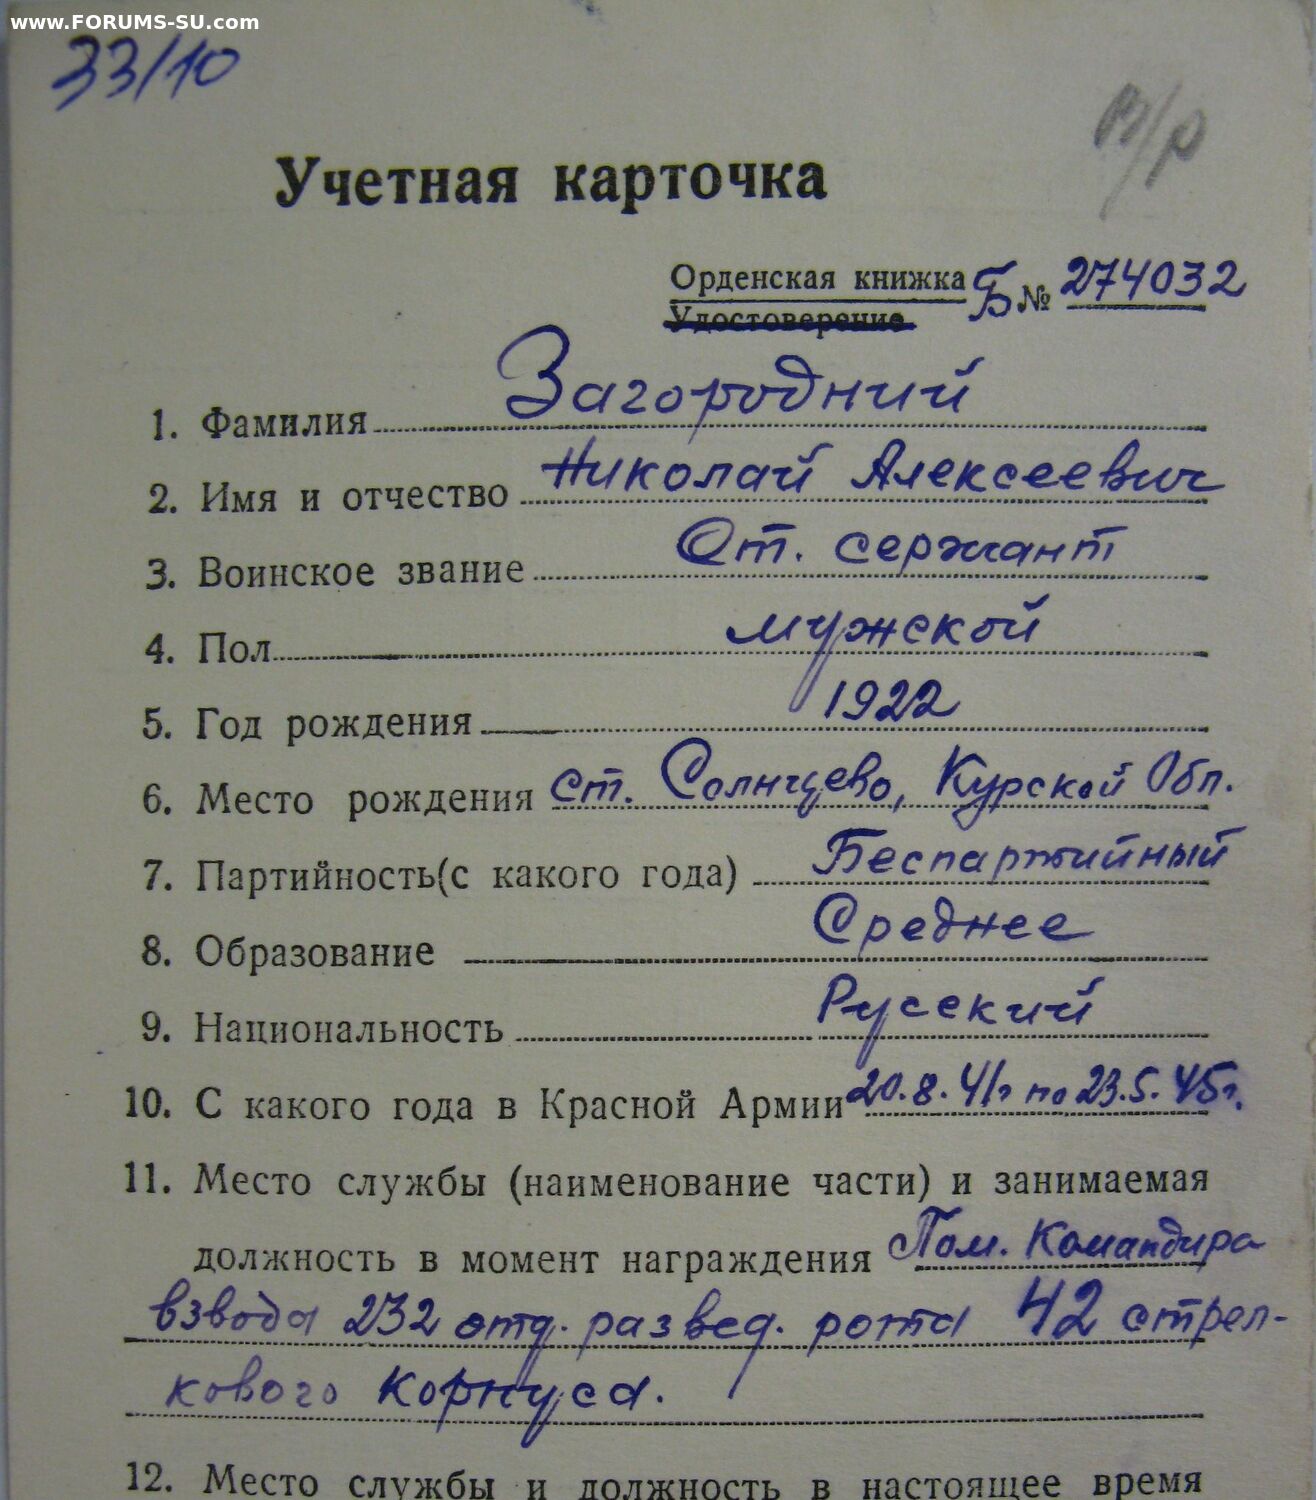 www.FORUMS-SU.com
33/10
Учетная карточка
Орденская книжка Б № 274032
Удостоверение
1. Фамилия Загородний
2. Имя и отчество Николай Алексеевич
3. Воинское звание Ст. сержант
4. Пол мужской
5. Год рождения 1922
6. Место рождения ст. Солнцево, Курской Обл.
7. Партийность(с какого года) Беспартийный
8. Образование Среднее
9. Национальность Русский
10. С какого года в Красной Армии 20.8.41г по 23.5.45г.
11. Место службы (наименование части) и занимаемая
должность в момент награждения Пом. Командира
взвода 232 отд. развед. рота 42 стрел-
кового корпуса.
12. Место службы и должность в настоящее время